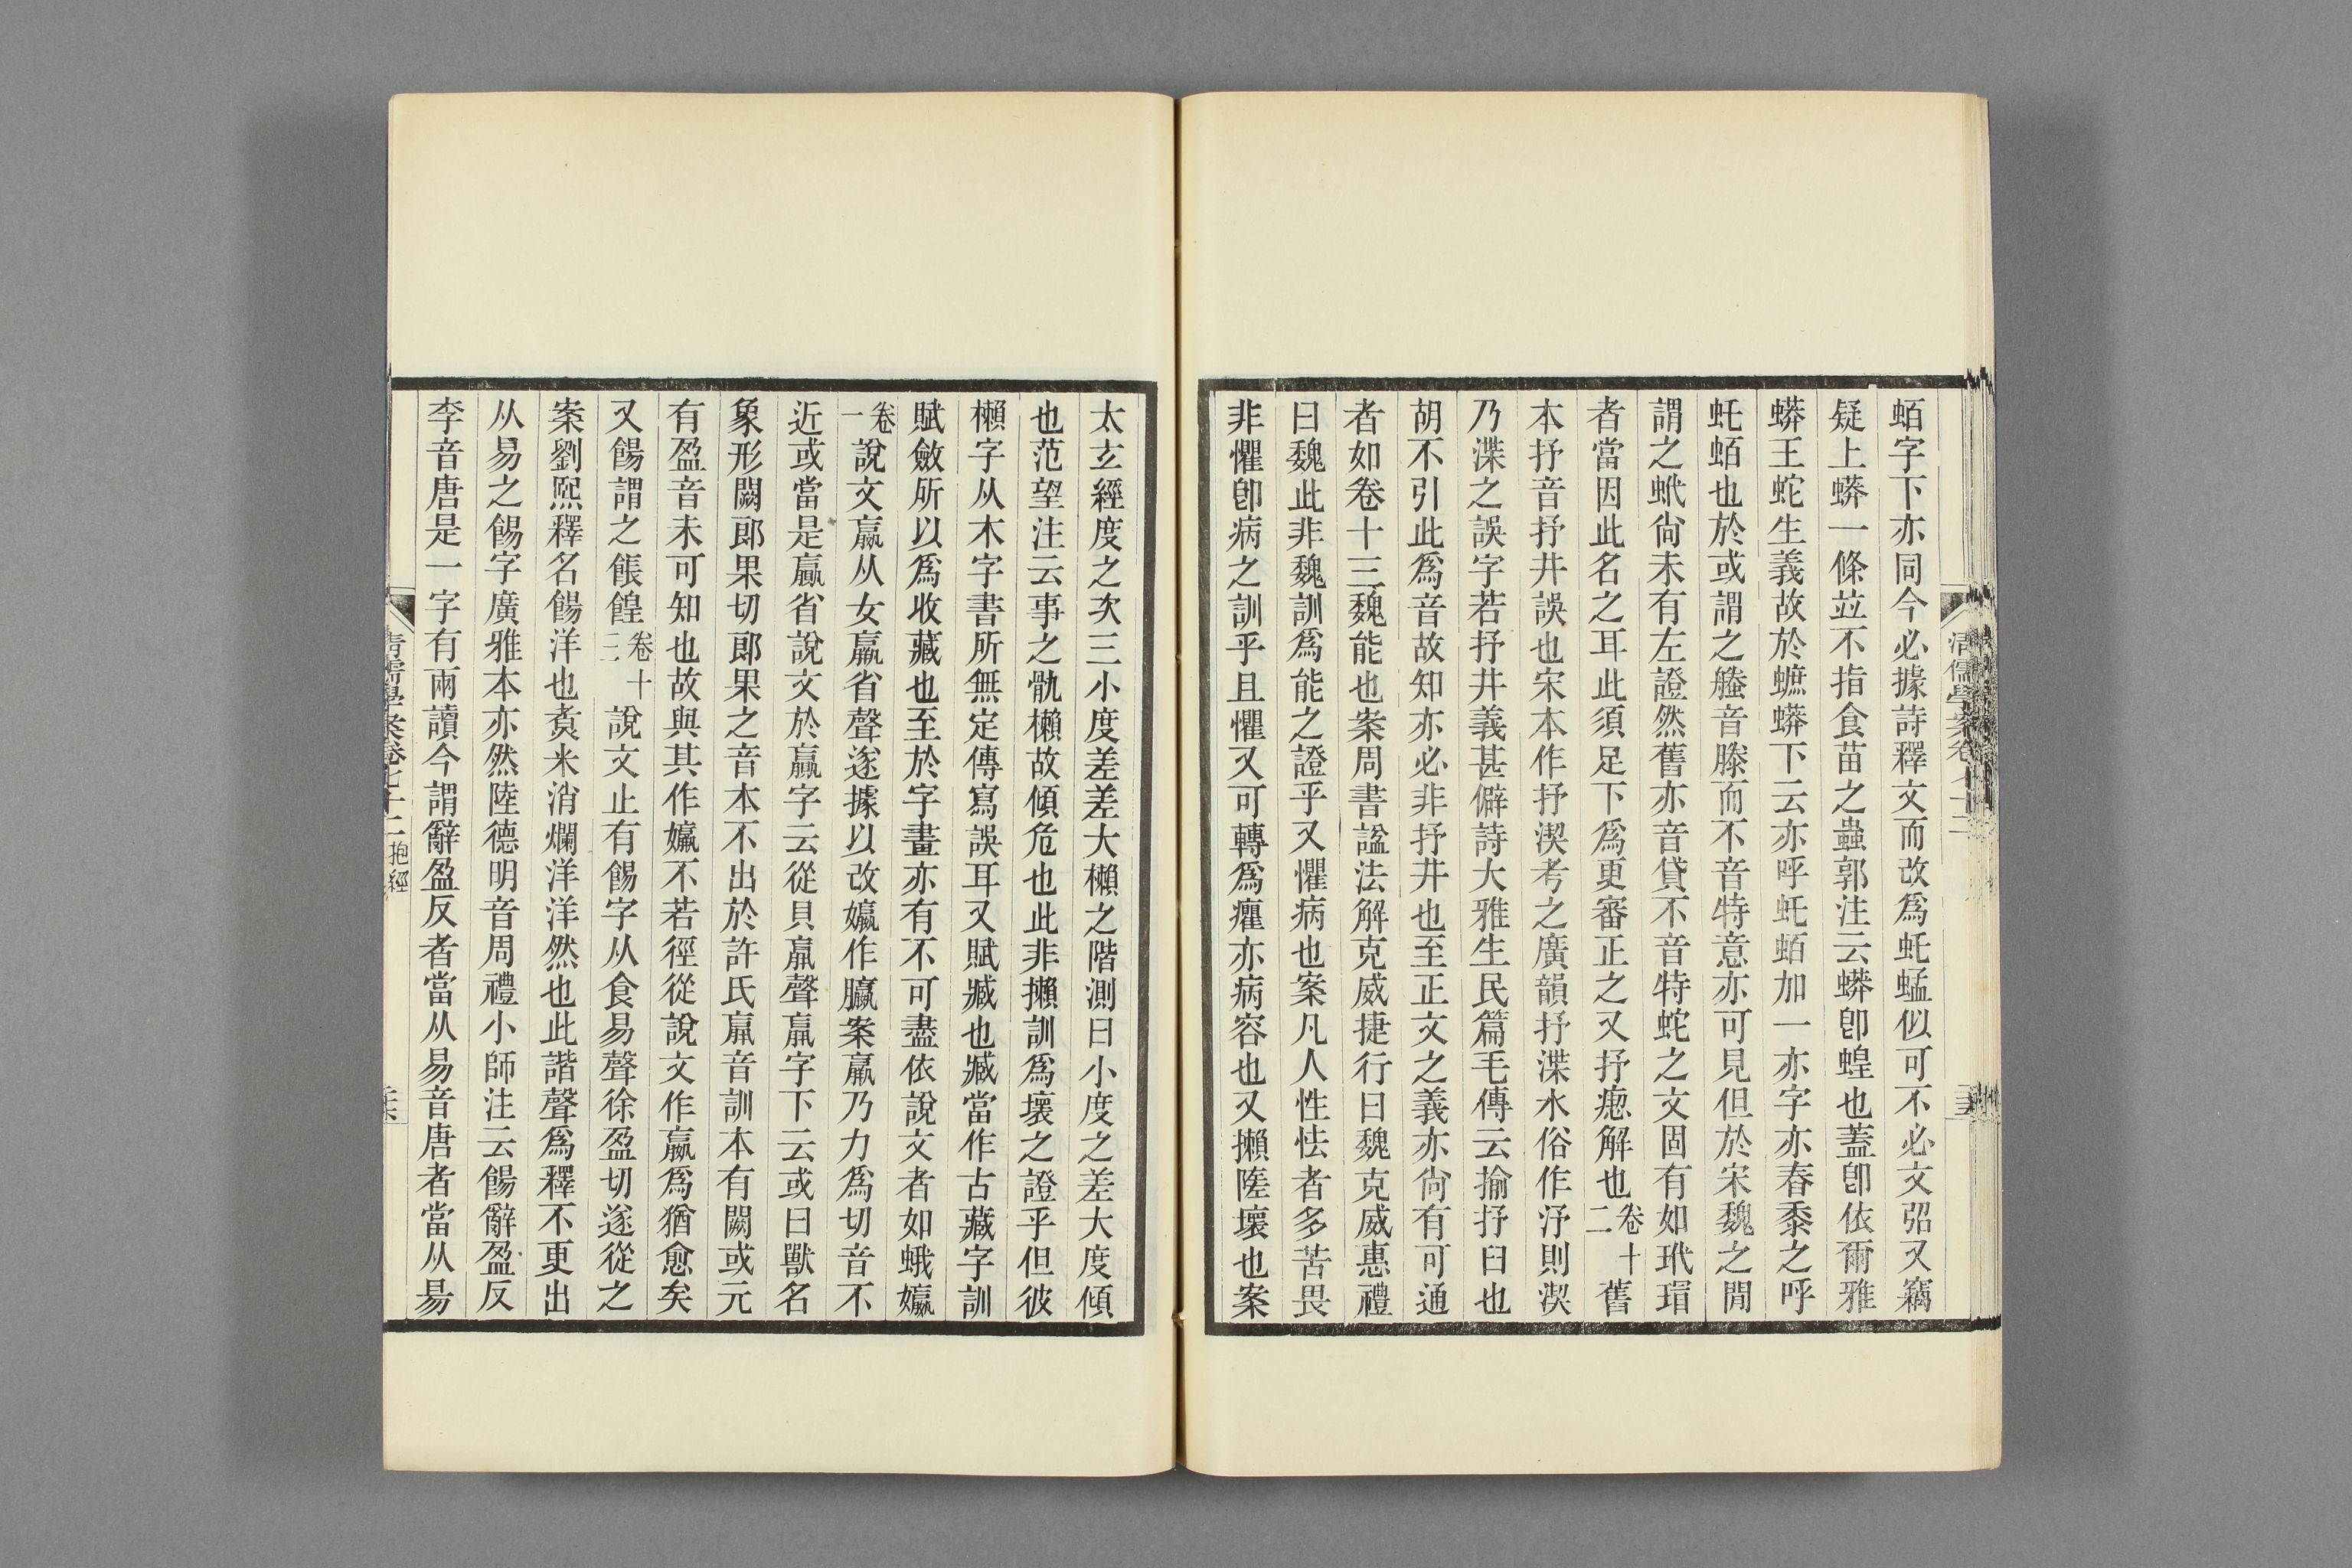 清儒學案卷七十二
蛨字下亦同今必據詩釋文而改爲虴蜢似可不必文弨又竊
疑上蟒一條竝不指食苗之蟲郭注云蟒卽蝗也蓋卽依爾雅
蟒王蛇生義故於䗪蟒下云亦呼虴蛨加一亦字亦舂黍之呼
虴蛨也於或謂之螣音滕而不音特意亦可見但於宋魏之閒
謂之蚮尙未有左證然舊亦音貸不音特蛇之文固有如玳瑁
者當因此名之耳此須足下爲更審正之又抒瘛解也卷十二舊
本抒音抒井誤也宋本作抒渫考之廣韻抒渫水俗作汿則渫
乃渫之誤字若抒井義甚僻詩大雅生民篇毛傳云揄抒臼也
胡不引此爲音故知亦必非抒井也至正文之義亦尙有可通
者如卷十三魏能也案周書諡法解克威捷行曰魏克威惠禮
曰魏此非魏訓爲能之證乎又懼病也案凡人性怯者多苦畏
非懼卽病之訓乎且懼又可轉爲癯亦病容也又攋隓壞也案
太玄經度之次三小度差差大攋之階測曰小度之差大度傾
也范望注云事之骫攋故傾危也此非攋訓爲壞之證乎但彼
攋字从木字書所無定傳寫誤耳又賦臧也臧當作古藏字訓
賦斂所以爲收藏也至於字畫亦有不可盡依說文者如蛾㜲
卷一說文嬴从女羸省聲遂據以改㜲作臝案羸乃力爲切音不
近或當是贏省說文於贏字云從貝𣎆聲𣎆字下云或曰獸名
象形闕郞果切郞果之音本不出於許氏𣎆音訓本有闕或元
有盈音未可知也故與其作㜲不若徑從說文作嬴爲猶愈矣
又餳謂之餦餭卷十三說文止有餳字从食昜聲徐盈切遂從之
案劉熙釋名餳洋也煑米消爛洋洋然也此諧聲爲釋不更出
从易之餳字廣雅本亦然陸德明音周禮小師注云餳辭盈反
李音唐是一字有兩讀今謂辭盈反者當从易音唐者當从昜
清儒學案卷七十二 抱經